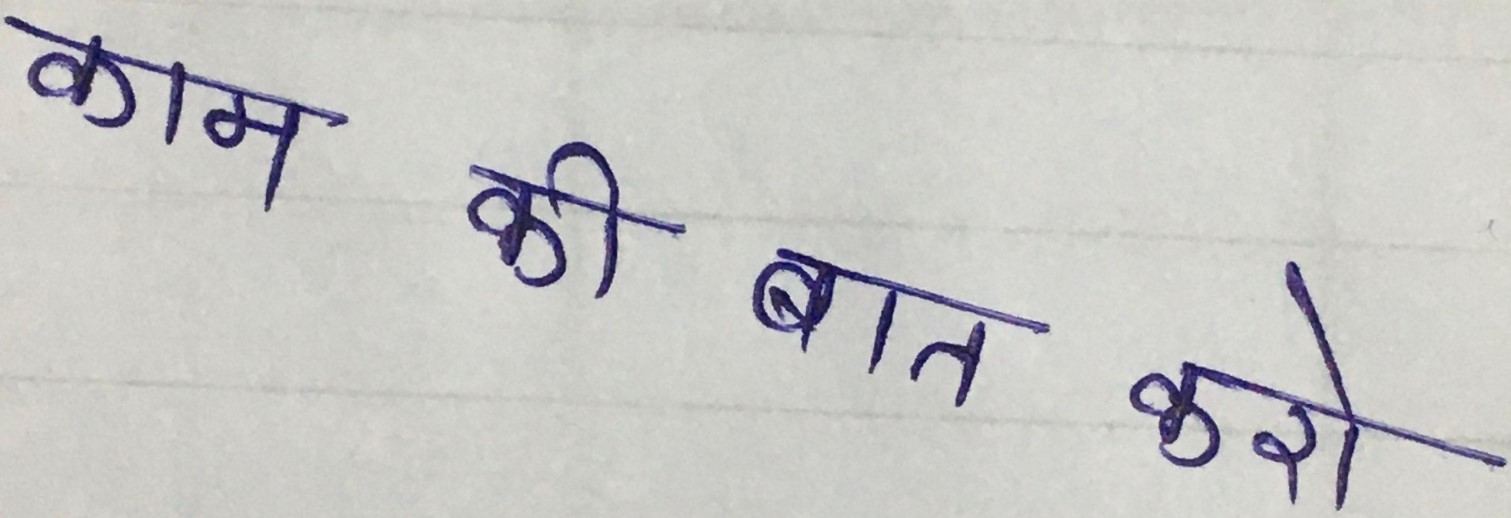 काम की बात करो